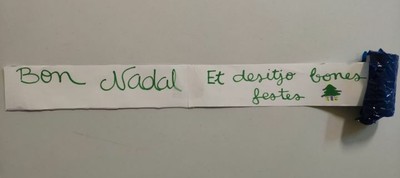 Bon Nadal Et desitjo bones
festes